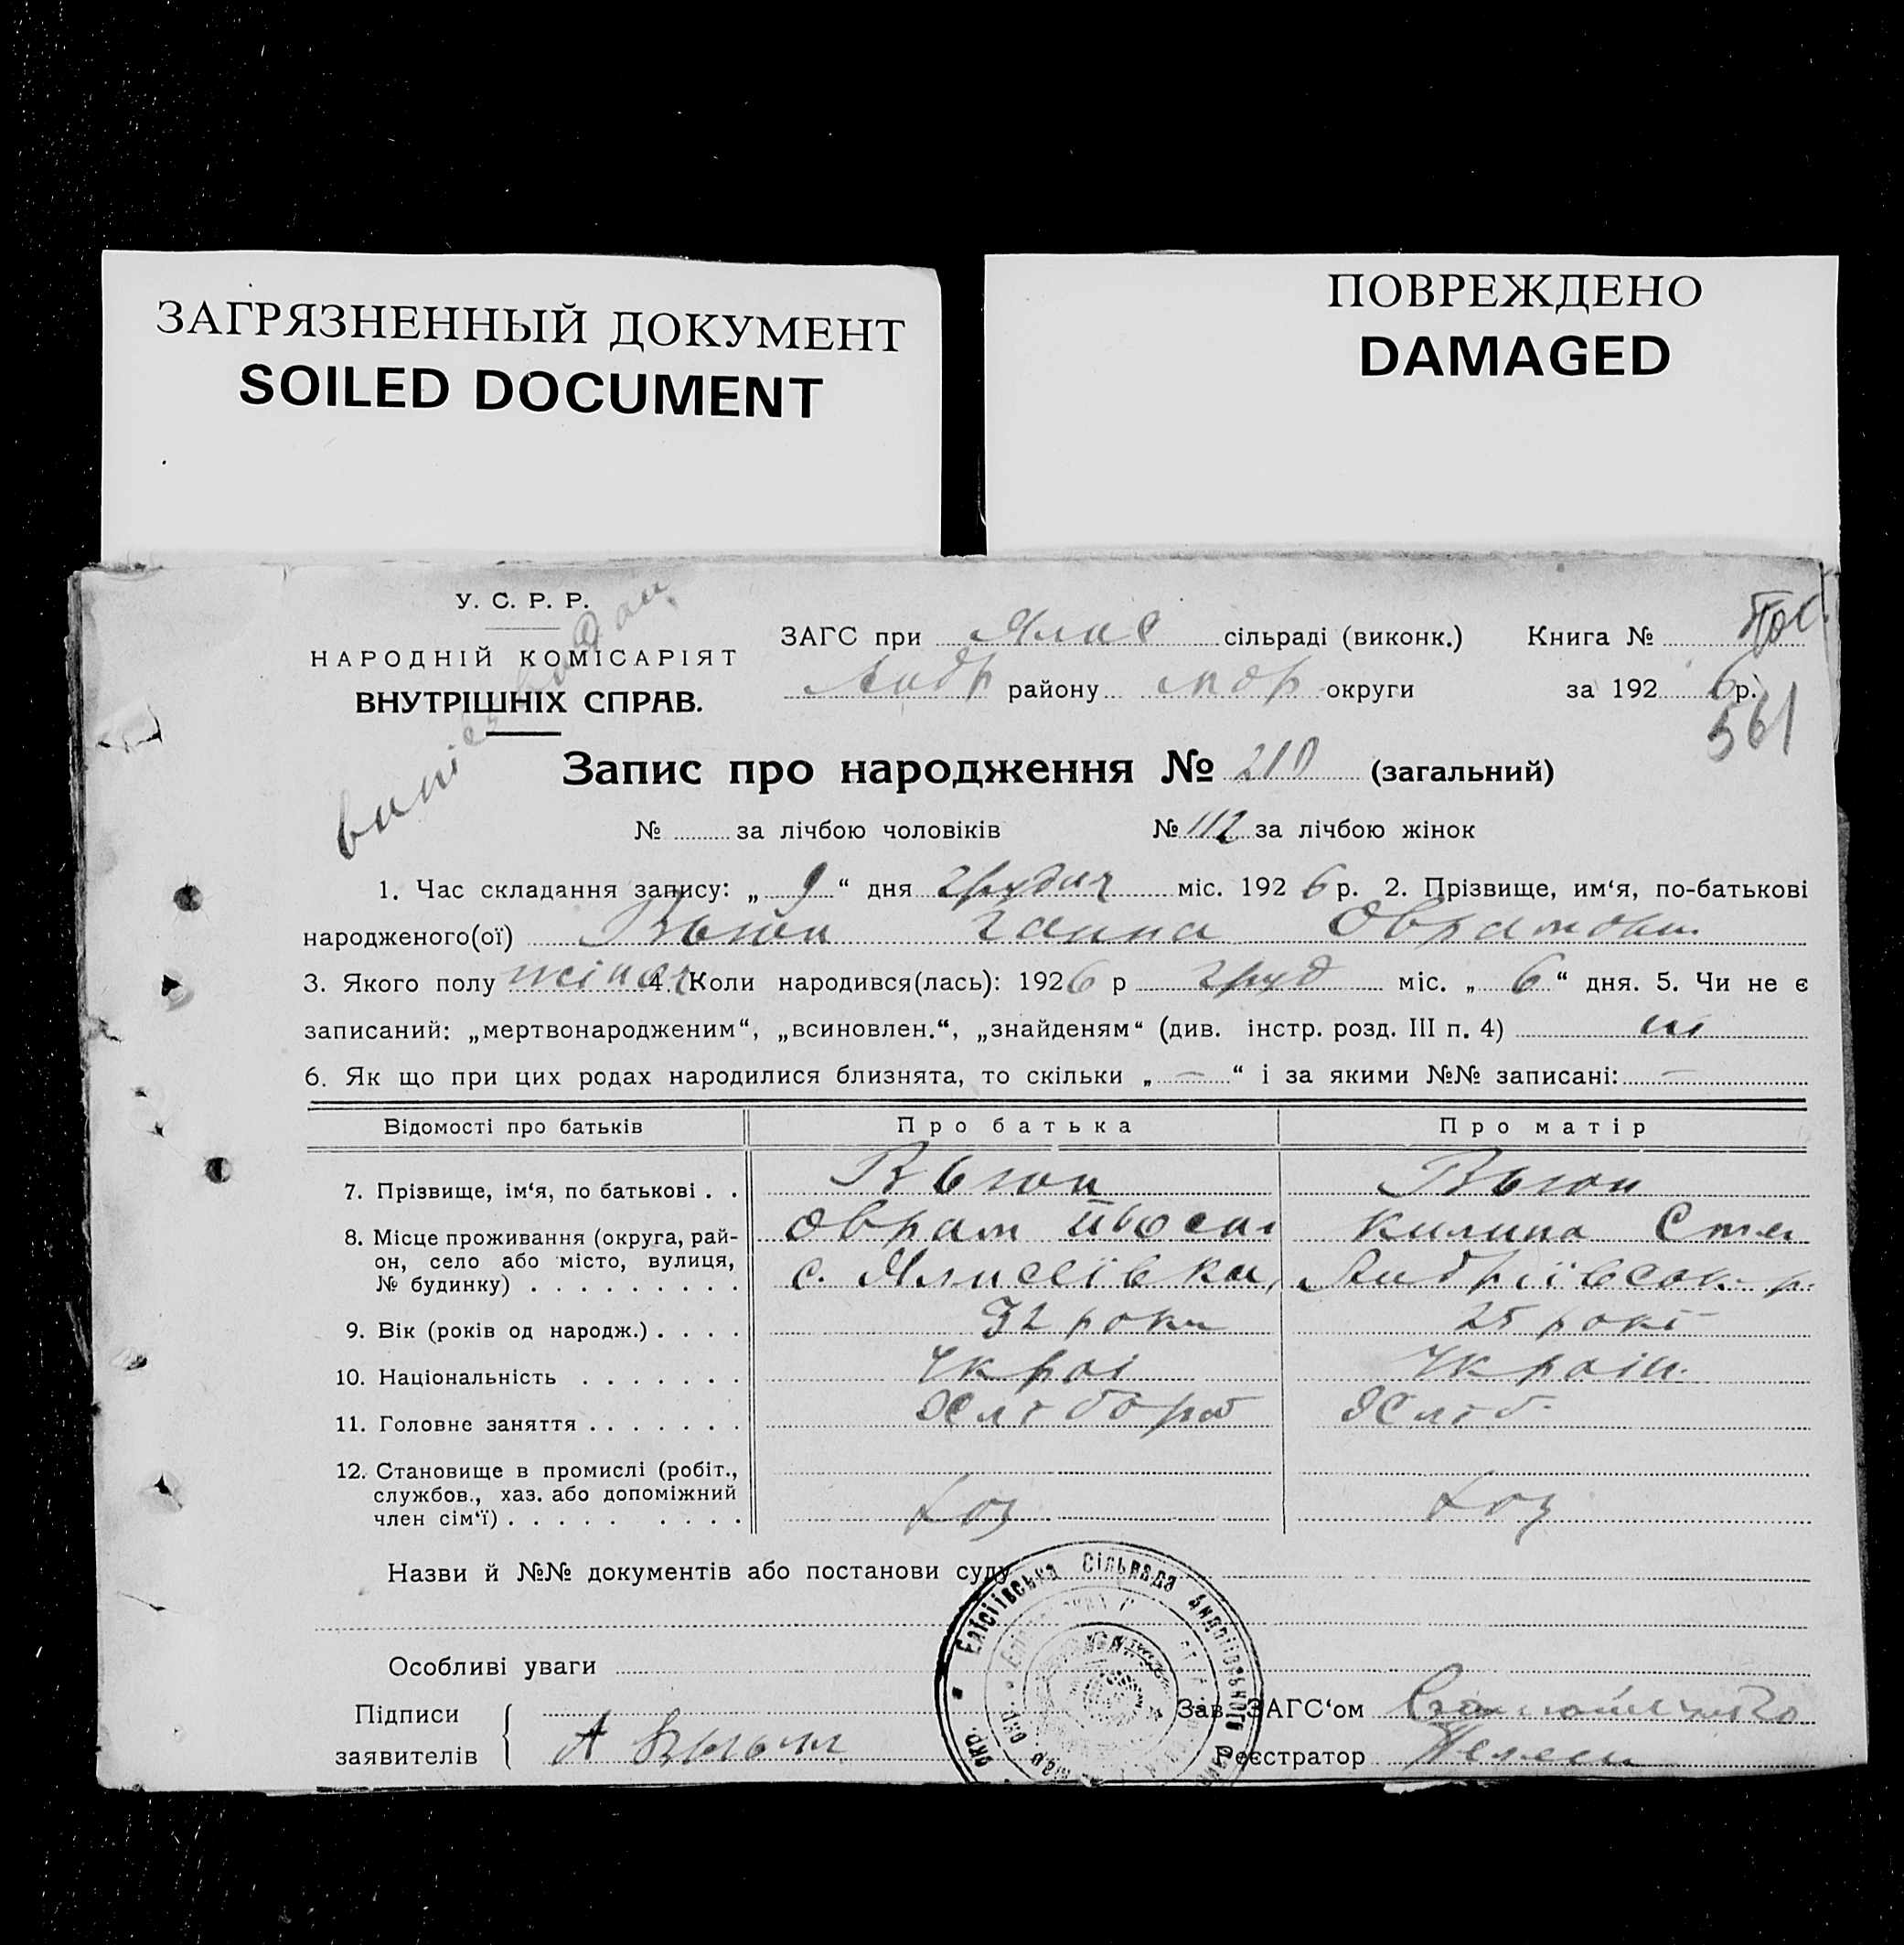 ЗАГРЯЗНЕННЫЙ ДОКУМЕНТ
SOILED DOCUMENT
ПОВРЕЖДЕНО
DAMAGED
У. С. Р. Р.
НАРОДНІЙ КОМІСАРІЯТ
ВНУТРІШНІХ СПРАВ.
ЗАГС при сільраді (виконк.) Книга №
Андр району округи за 192 6 р.
561
Запис про народження № 210 (загальний)
№ за лічбою чоловіків № 112 за лічбою жінок
1. Час складання запису: „ 9 “ дня грудня міс. 192 6 р. 2. Прізвище, им‘я, по-батькові
народженого(ої) Вьюн Ганна Оврамовн.
3. Якого полу жіноч 4. Коли народився(лась): 192 6 р груд міс. „ 6 “ дня. 5. Чи не є
записаний: „мертвонародженим“, „всиновлен.“, „знайденям“ (див. інстр. розд. III п. 4) ні
6. Як що при цих родах народилися близнята, то скільки „ — “ і за якими №№ записані: —
Відомості про батьків Про батька Про матір
7. Прізвище, ім‘я, по батькові . . Вьюн Вьюн
8. Місце проживання (округа, рай- Оврам Килина
он, село або місто, вулиця,
№ будинку) . . . . . . . . . с. Ялисеївка, Андріївськ. р.
9. Вік (років од народж.) . . . . 32 роки 25 рокі
10. Національність . . . . . . . Украі Украін.
11. Головне заняття . . . . . . . Хлібороб Хліб.
12. Становище в промислі (робіт.,
службов., хаз. або допоміжний
член сім‘ї) . . . . . . . . . хоз хоз
Назви й №№ документів або постанови суду
Елісіївська Сільрада Андріївського
Особливі уваги
Підписи
заявителів А Вьюн
Зав. ЗАГС‘ом
Реєстратор